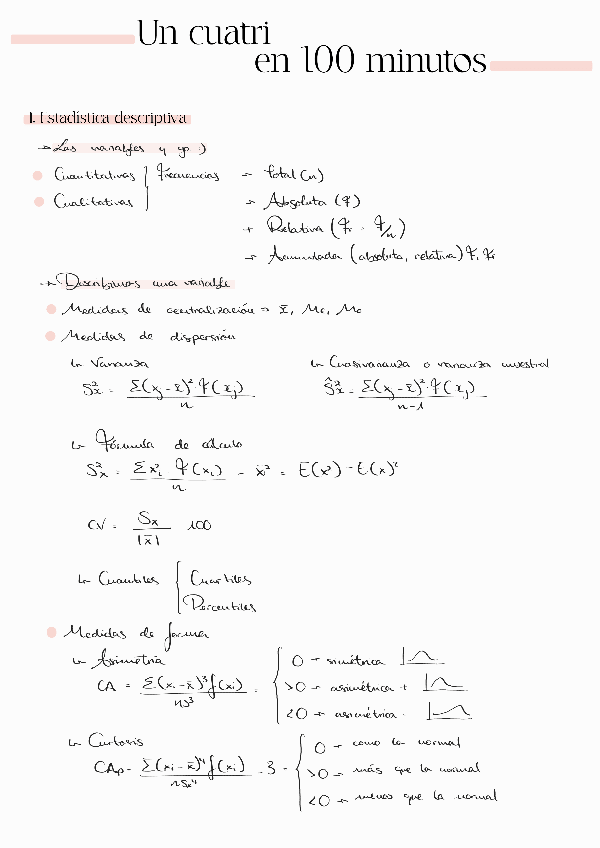 Un cuatri
en 100 minutos
1. Estadística descriptiva
→ Las variables y yo :)
• Cuantitativas | Frecuencias → Total (n)
• Cualitativas | → Absoluta (f)
→ Relativa (fr = f/n)
→ Acumulada (absoluta, relativa) F, Fr
→ Describimos una variable
• Medidas de centralización → x̄, Me, Mo
• Medidas de dispersión
↳ Varianza ↳ Cuasivarianza o varianza muestral
S²x = Σ(xj - x̄)² · f(xj) / n Ŝ²x = Σ(xj - x̄)² · f(xj) / n-1
↳ Fórmula de cálculo
S²x = Σ x²i f(xi) / n - x̄² = E(x²) - E(x)²
CV = Sx / |x̄| 100
↳ Cuantiles { Cuartiles
Percentiles
• Medidas de forma
↳ Asimetría { 0 → simétrica
CA = Σ(xi - x̄)³ f(xi) / ns³ >0 → asimétrica +
<0 → asimétrica -
↳ Curtosis { 0 → como la normal
CAp = Σ(xi - x̄)⁴ f(xi) / nSx⁴ - 3 >0 → más que la normal
<0 → menos que la normal